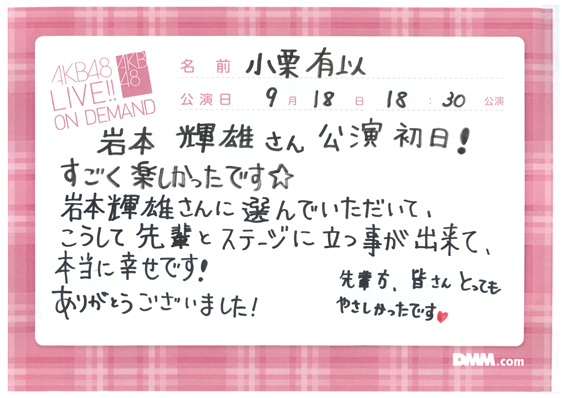 AKB48
LIVE!!
ON DEMAND
AKB
48
名前 小栗有以
公演日 9月18日 18:30公演
岩本 輝雄さん 公演初日!
すごく楽しかったです☆
岩本輝雄さんに選んでいただいて、
こうして先輩とステージに立つ事が出来て、
本当に幸せです!
ありがとうございました!
先輩方、皆さんとっても
やさしかったです♥
DMM.com